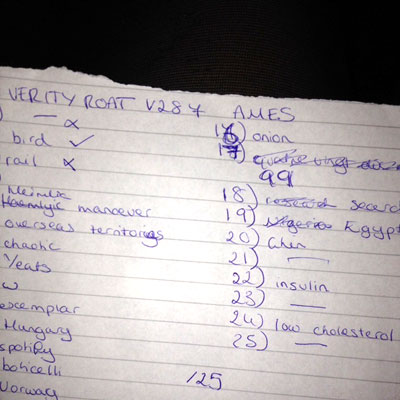 VERITY ROAT V287 AMES
— x
bird ✓
rail x
Heimlic
manoever
overseas territories
chaotic
Yeats
w
exemplar
Hungary
spotify
boticelli
Norway
16) onion
17) quatre vingt dix
99
18) research
19) Nigeria Egypt
20)
21) —
22) insulin
23) —
24) low cholesterol
25) —
/25